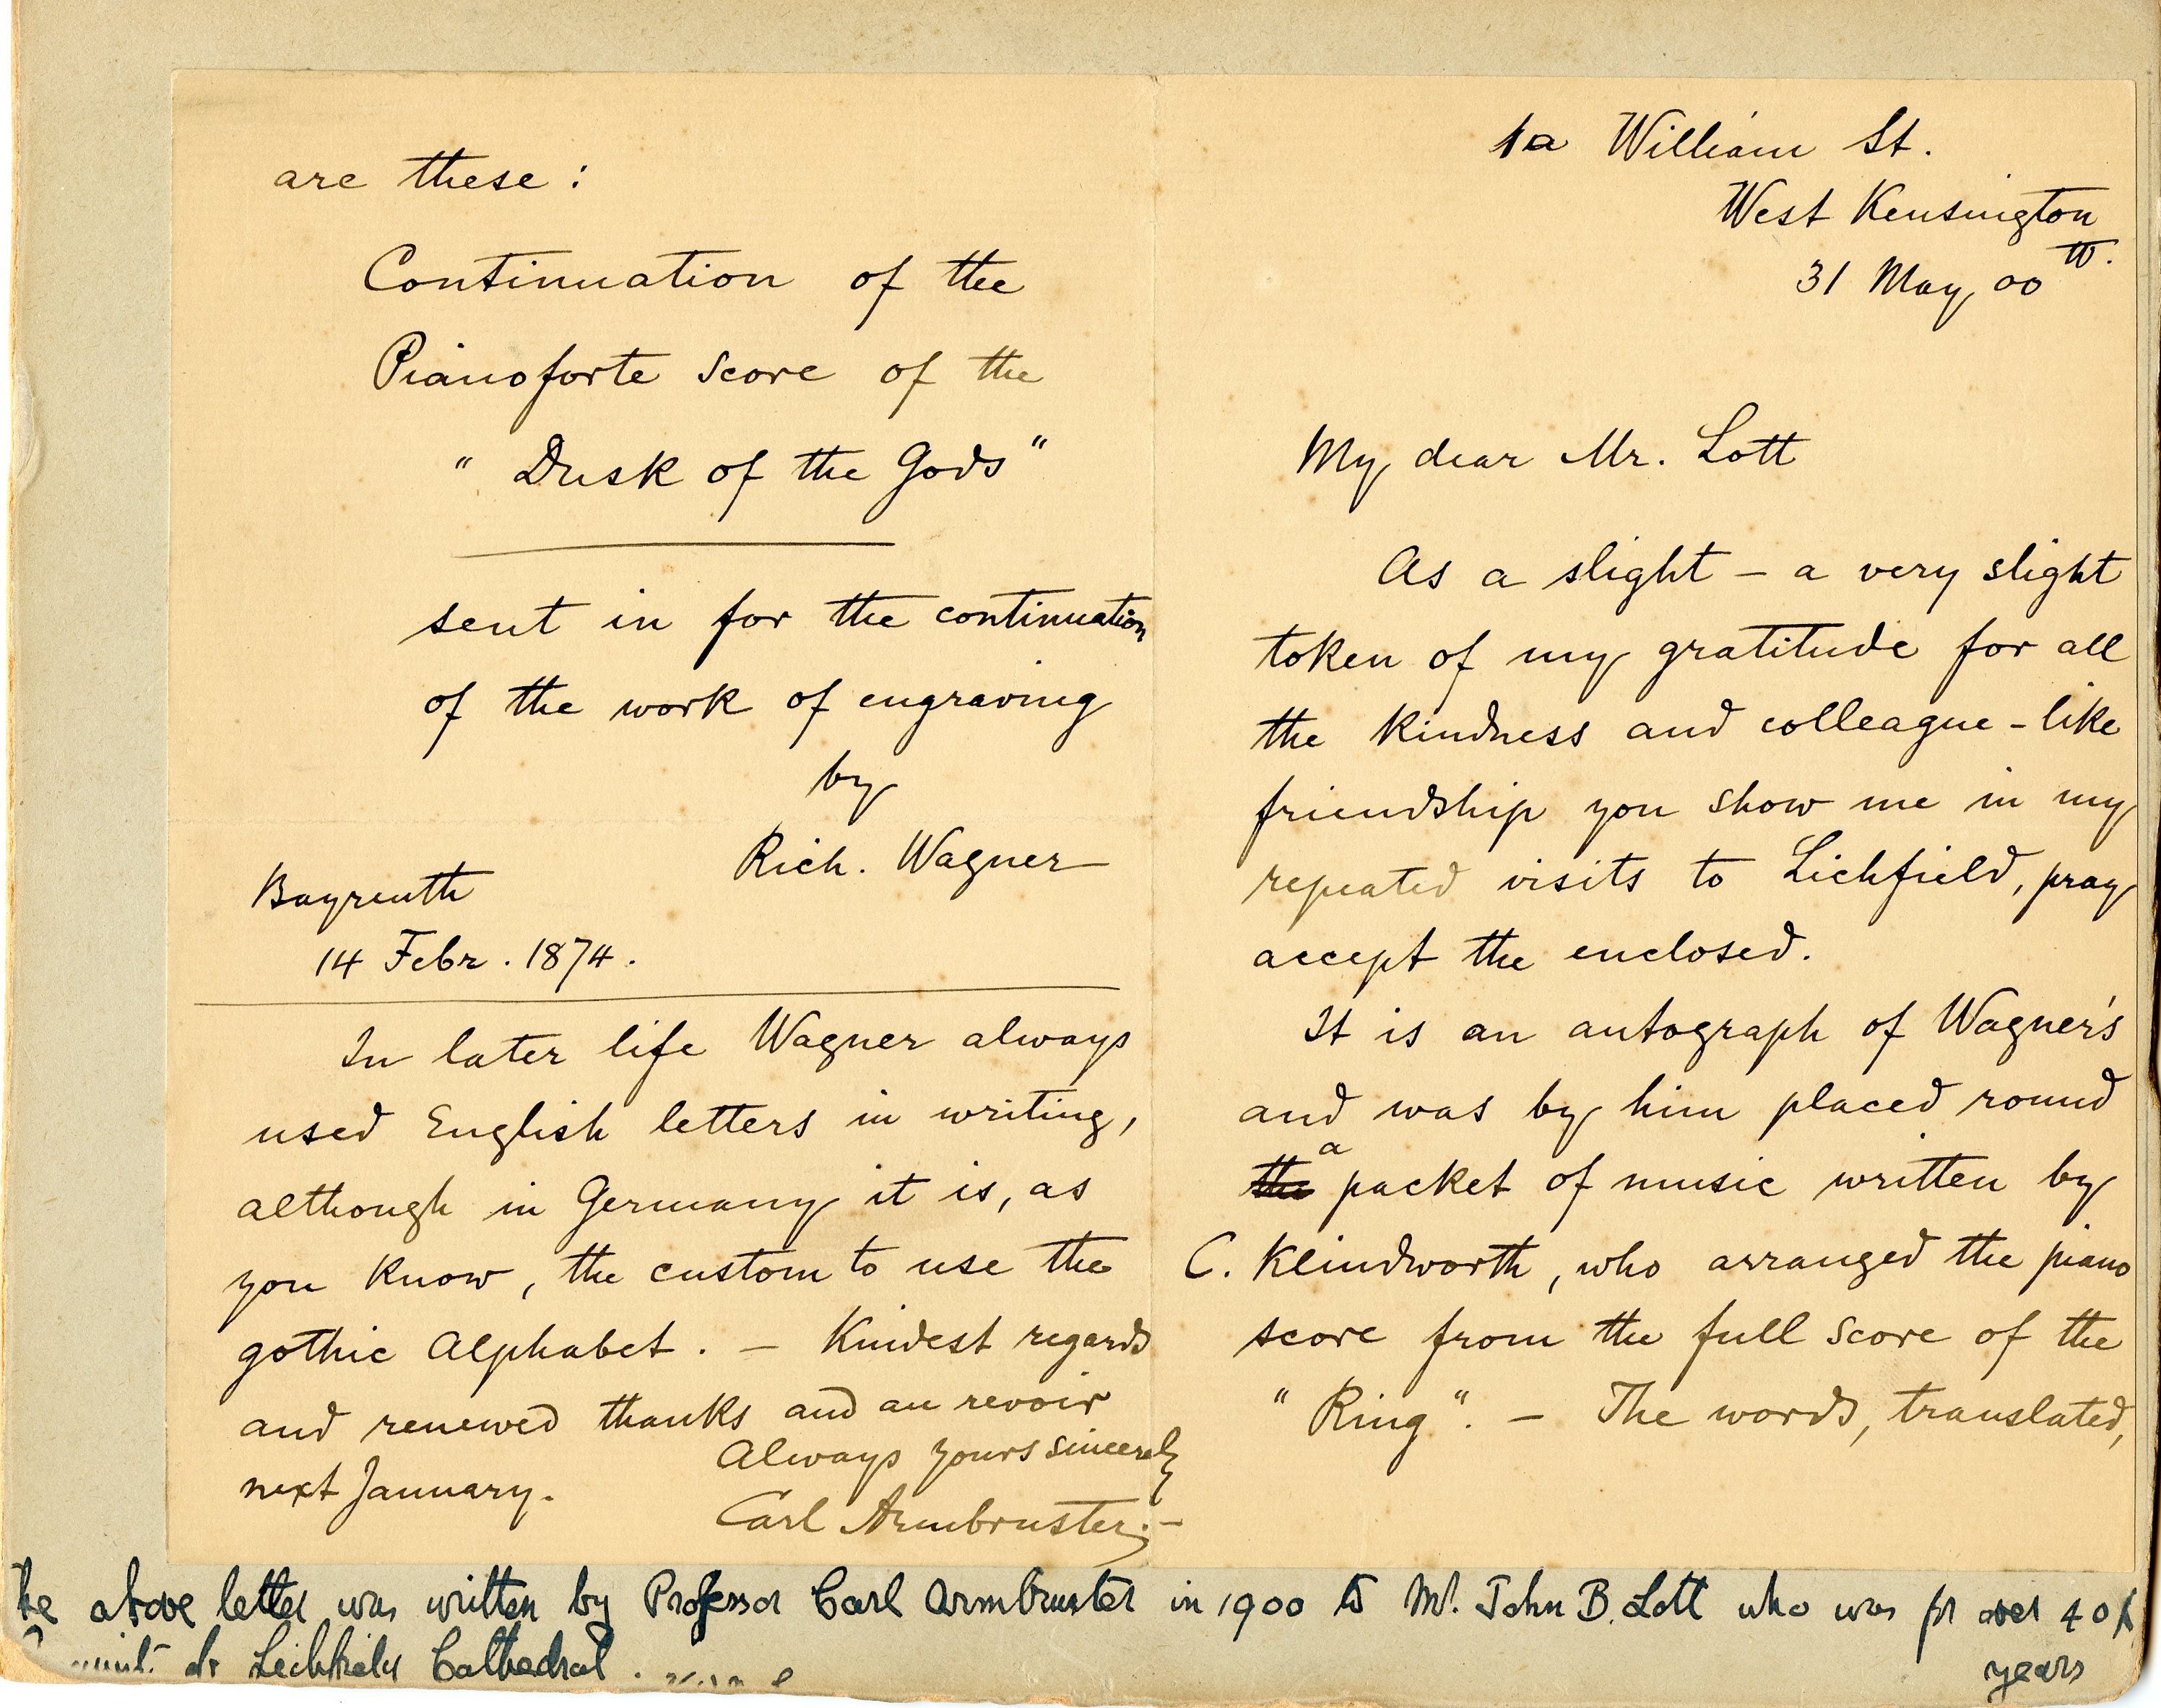 1a William St.
West Kensington
W.
31 May, 00
My dear Mr. Lott
As a slight – a very slight
token of my gratitude for all
the kindness and colleague-like
friendship you show me in my
repeated visits to Lichfield, pray
accept the enclosed.
It is an autograph of Wagner's
and was by him placed round
the a packet of music written by
C. Klindworth, who arranged the piano
score from the full score of the
"Ring". – The words, translated,
are these:
Continuation of the
Pianoforte score of the
"Dusk of the Gods"
sent in for the continuation
of the work of engraving
by
Rich. Wagner
Bayreuth
14 Febr. 1874.
In later life Wagner always
used English letters in writing,
although in Germany it is, as
you know, the custom to use the
gothic Alphabet. – Kindest regards
and renewed thanks and au revoir
next January.
Always yours sincerely
Carl Armbruster.–
above letter was written by Professor Carl Armbruster in 1900 to Mr. John B. Lott who was for over 40
years
at Lichfield Cathedral.